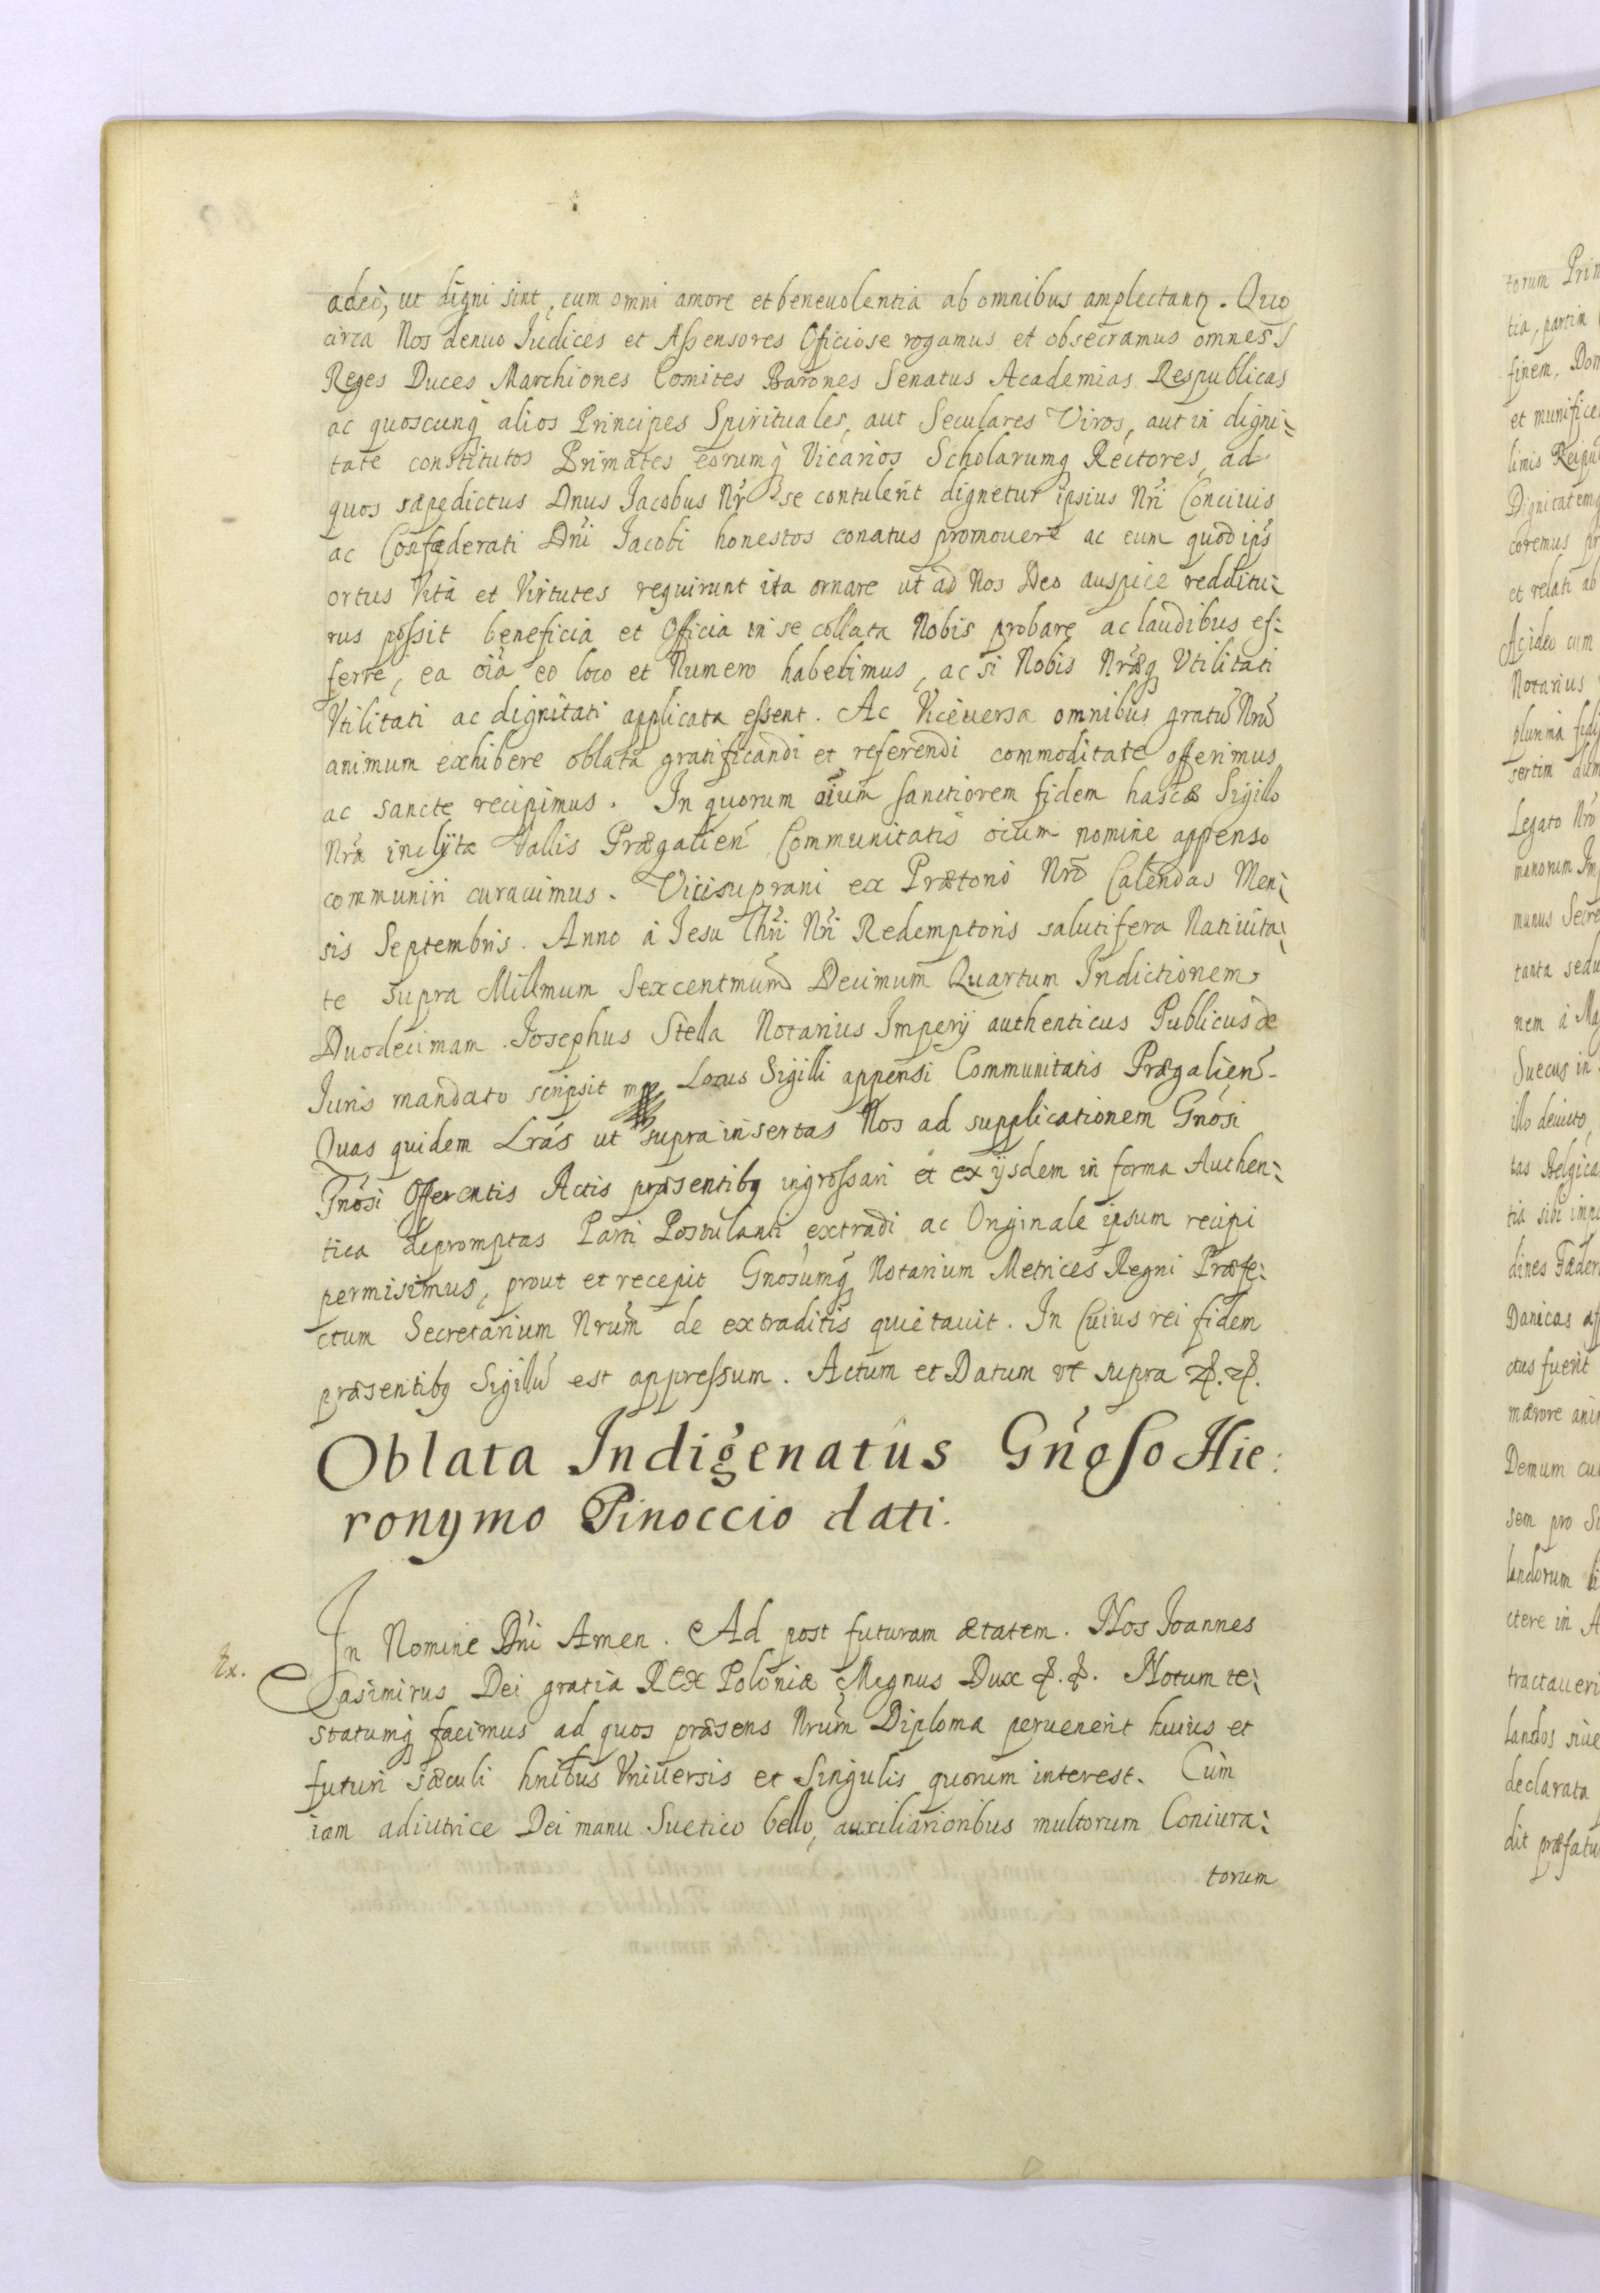 adeò, ut digni sint, cum omni amore et beneuolentia ab omnibus amplectantꝛ. Quo
circa Nos denuo Iudices et Aſsensores Officiose rogamus et obsecramus omnes
Reges Duces Marchiones Comites Barones Senatus Academias Respublicas
ac quoscunq̨ alios Principes Spirituales, aut Seculares Viros, aut in digni:
tate constitutos Primates eorumq̨ Vicarios Scholarumq̨ Rectores, ad
quos sæpedictus Dnus Iacobus Nr̃ se contulerit dignetur ipsius Nr̃i Conciuis
ac Confæderati Dn̄i Iacobi honestos conatus promouere ac eum quod ips̃
ortus Vita et Virtutes requirunt ita ornare ut ad Nos Deo auspice redditu:
rus poſsit beneficia et Officia in se collata Nobis probare ac laudibus ef:
ferre, ea oĩa eo loco et Numero habebimus, ac si Nobis Nr̃æq̨ Vtilitati
Vtilitati ac dignitati applicata eſsent. Ac Viceuersa omnibus gratũ Nrũ
animum exhibere oblata gratificandi et referendi commoditate offerimus
ac sancte recipimus. In quorum oĩum sanctiorem fidem hasce Sigillo
Nr̃æ inclytæ Vallis Prægalien̄ Communitatis oĩum nomine appenso
communiri curauimus. Vicisuprani ex Prætorio Nrõ Calendas Men:
sis Septembris. Anno à Iesu Chr̃i Nr̃i Redemptoris salutifera Natiuita:
te supra Millmum Sexcentmum̃ Decimum Quartum Indictionem
Duodecimam. Iosephus Stella Notarius Imperij authenticus Publicus de
Iuris mandato scripsit mpp Locus Sigilli appensi Communitatis Prægalien̄.
Quas quidem Lrãs ut supra insertas Nos ad supplicationem Gnõsi
Gnõsi Offerentis Actis præsentibꝫ ingroſsari et ex ijsdem in forma Authen:
tica depromptas Parti Postulanti extradi ac Originale ipsum recipi
permisimus, prout et recepit Gnosumq̨ Notarium Metrices Regni Præfe:
ctum Secretarium Nrum̃ de extraditis quietauit. In Cuius rei fidem
præsentibꝫ Sigillũ est appreſsum. Actum et Datum ut supra &. &.
Oblata Indigenatus Gñoso Hie:
ronymo Pinoccio dati.
In Nomine Dñi Amen. Ad post futuram ætatem. Nos Ioannes
Ex.
Casimirus Dei gratia Rex Poloniæ Magnus Dux &. &. Notum te:
statumq̨ facimus ad quos præsens Nrum̃ Diploma peruenerit huius et
futuri sæculi hnibus Vniuersis et Singulis quorum interest. Cùm
iam adiutrice Dei manu Suetico bello, auxiliarioribus multorum Coniura:
torum